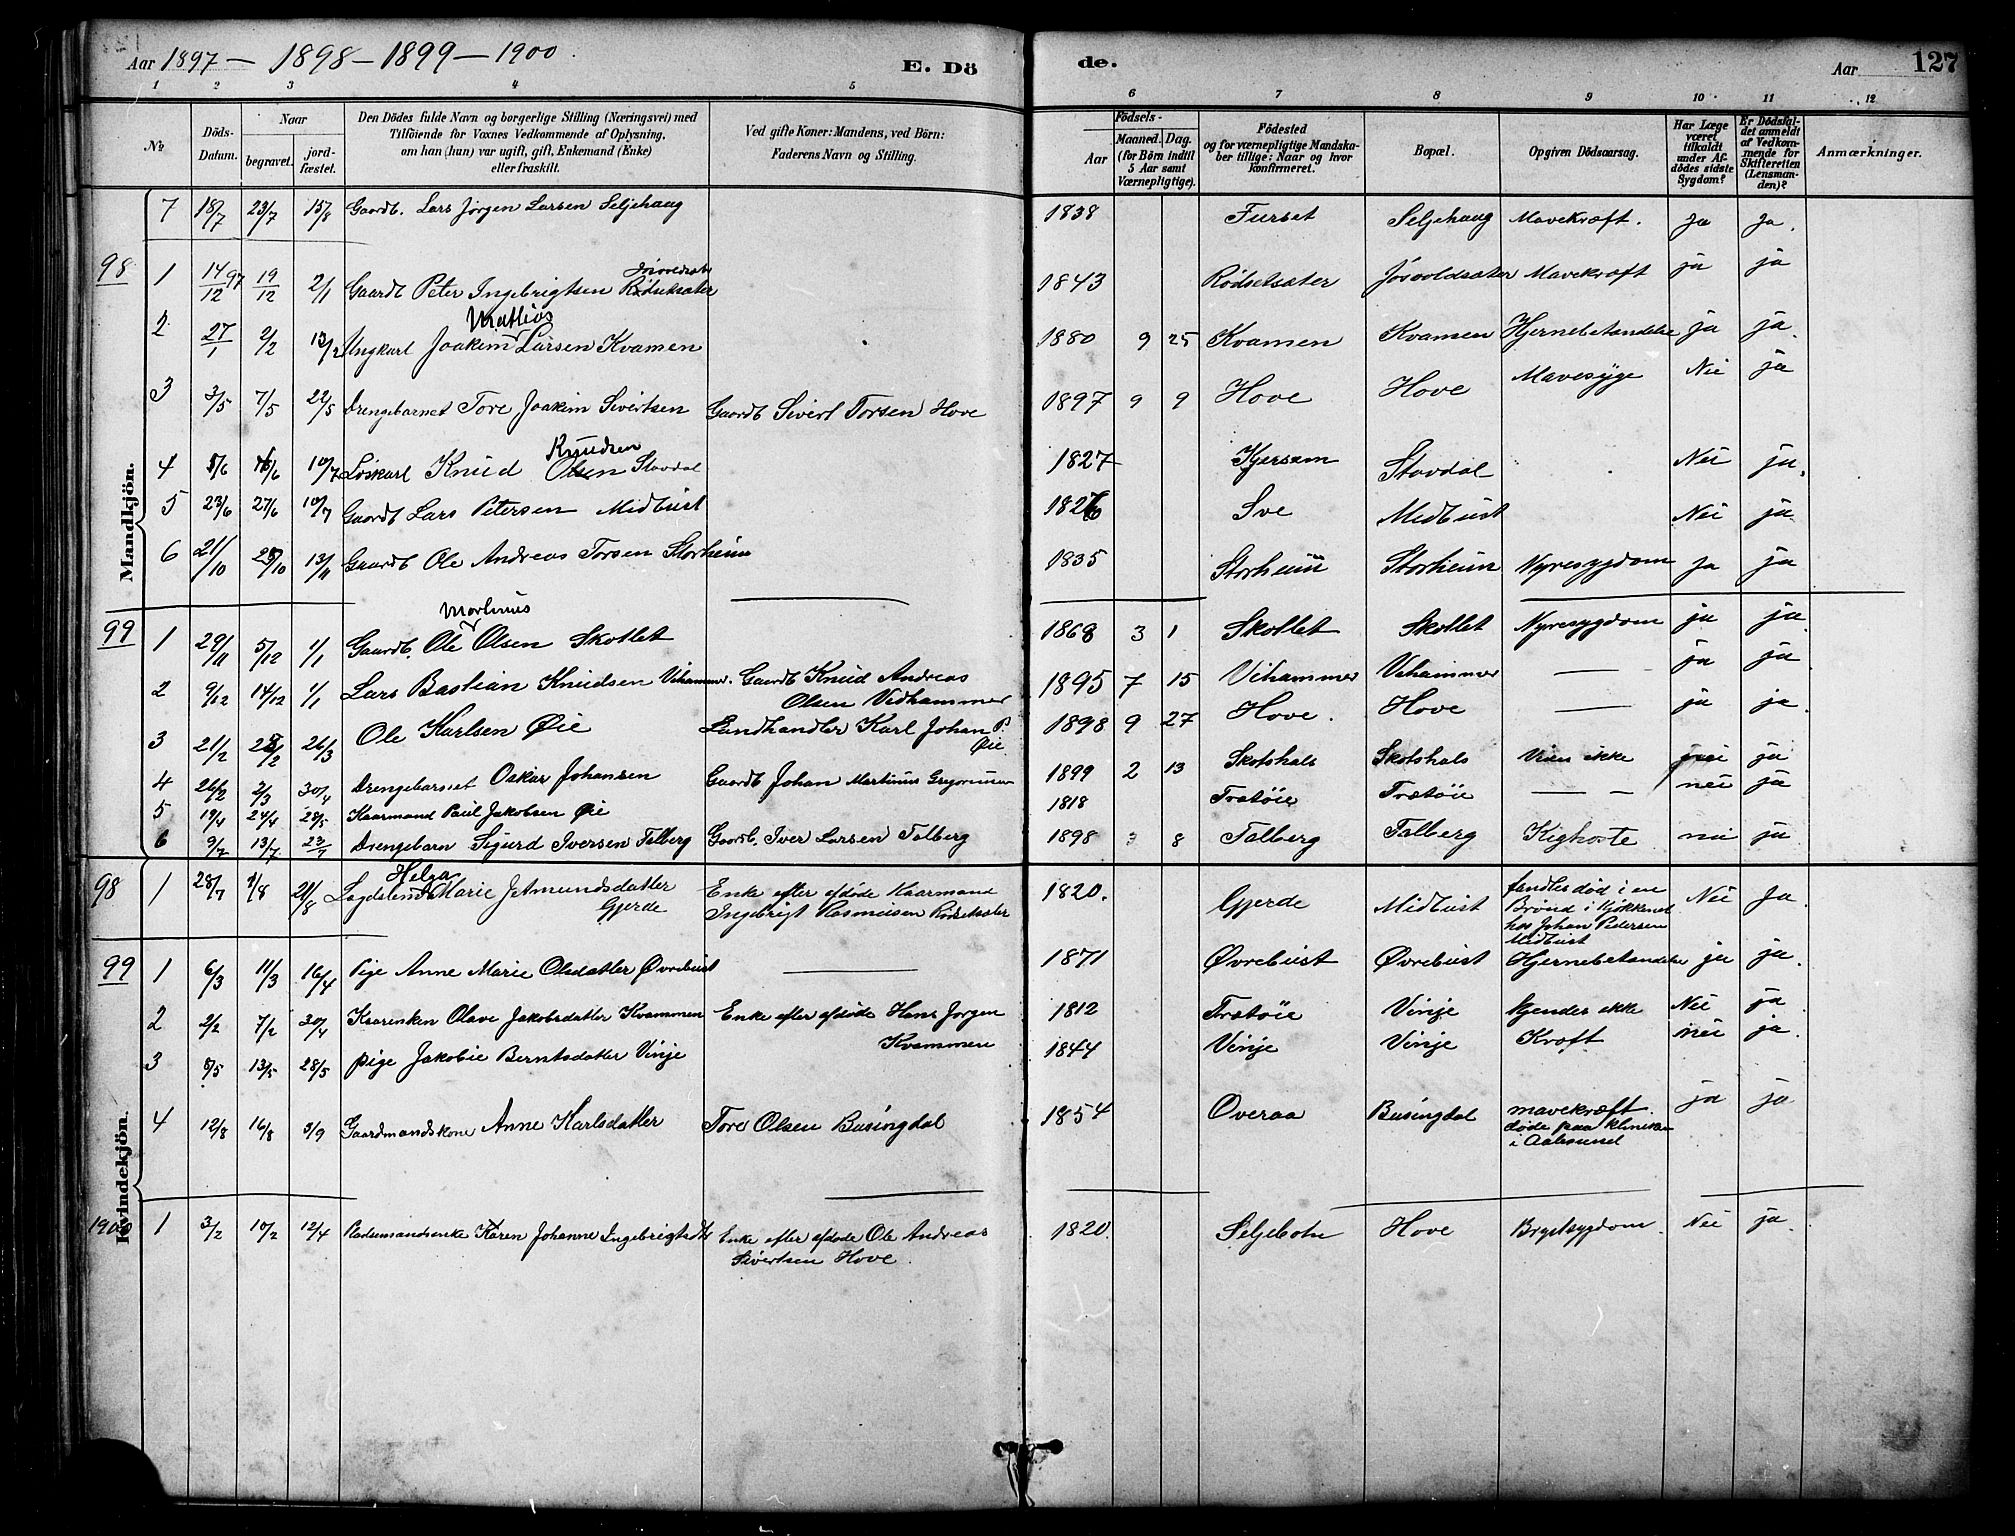 Aar 1897 – 1898 – 1899 – 1900
E. Dö
de.
Aar
127
1 2 3 4 5 6 7 8 9 10 11 12
№
Döds-Datum.
Naar
begravet.
jord-fæstet.
Den Dödes fulde Navn og borgerlige Stilling (Næringsvei) med
Tilföiende for Voxnes Vedkommende af Oplysning,
om han (hun) var ugift, gift, Enkemand (Enke)
eller fraskilt.
Ved gifte Koner: Mandens, ved Börn:
Faderens Navn og Stilling.
Födsels-
Aar
Maaned. Dag.
(for Börn indtil
5 Aar samt
Værnepligtige).
Födested
og for værnepligtige Mandska-
ber tillige: Naar og hvor
konfirmeret.
Bopæl.
Opgiven Dödsaarsag.
Har Læge
været
tilkaldt
under Af-
dödes sidste
Sygdom?
Er Dödsfal-
det anmeldt
af Vedkom-
mende for
Skifteretten
(Lensman-
den)?
Anmærkninger.
Mandkjön.
7 18/7 23/7 15/8 Gaardb. Lars Jørgen Larsen Seljehaug 1838 Furset Seljehaug Mavekræft. Ja Ja.
98 1 14/12 97 19/12 2/1 Gaardb Peter Ingebrigtsen Rødsetsæter 1843 Rødsetsæter Jøsvoldsæter Mavekræft ja ja
2 27/1 2/2 13/2 Ungkarl Joakim Mathias Larsen Kvamen 1880 9 25 Kvamen Kvamen Hjernebetændelse ja ja.
3 3/5 7/5 22/5 Drengebarnet Tore Joakim Sivertsen Gaardb Sivert Torsen Hove 1897 9 9 Hove Hove Mavesyge Nei ja
4 5/6 10/7 Løskarl Knud Knudsen Stavdal 1827 Kjersem Stavdal Nei ja.
5 23/6 27/6 10/7 Gaardb Lars Petersen Midtbust 1826 Sve Midtbust Nei ja
6 21/10 13/11 Gaardb Ole Andreas Torsen Storheim 1835 Storheim Storheim Nyresygdom Ja ja
99 1 29/11 5/12 1/1 Gaardb. Ole Martinus Olsen Skotlet 1868 3 1 Skotlet Skotlet Nyresygdom ja ja
2 9/12 14/12 1/1 Lars Bastian Knudsen Vihammer. Gaardb Knud Andreas
Olsen Vidhammer 1895 7 15 Vihammer Vihammer — ja ja
3 21/2 26/3 Ole Karlsen Øie Landhandler Karl Johan P.
Øie 1898 9 27 Hove. Hove — ja ja.
4 26/2 2/3 30/4 Drengebarnet Oskar Johansen Gaardb Johan Martinus 1899 2 13 Skotshals Skotshals Vides ikke nei ja
5 19/4 24/4 28/5 Kaarmand Paul Jakobsen Øie 1818 Tratøie Trætøie — — nei ja
6 9/7 13/7 Drengebarn Sigurd Iversen Talberg Gaardb. Iver Larsen Talberg 1898 3 8 Talberg Talberg Kighoste nei ja
Kvindekjön.
98 1 28/7 1/8 21/8 Lægdslem Helga Marie Jetmundsdatter
Gjerde Enke efter afdøde Kaarmand
Ingebrigt Rasmusen Rødsetsæter 1820. Gjerde Midtbust fandtes død i en
Brønd i Kjøkkenet
hos Johan Pedersen
Midtbust Nei Ja.
99 1 6/3 11/3 16/4 Pige Anne Marie Olsdatter Øvrebust — 1871 Øvrebust Øvrebust Hjernebetændelse ja ja.
2 2/2 7/2 30/4 Kaarenken Olave Jakobsdatter Kvammen Enke efter afdøde Hans Jørgen
Kvammen 1812 Trætøie Vinje kjendes ikke Nei ja
3 8/5 13/5 28/5 pige Jakobie Berntsdatter Vinje 1844 Vinje Vinje Kræft nei ja.
4 12/8 16/8 3/9 Gaardmandskone Anne Karlsdatter Tore Olsen Busingdal 1854 Overaa Busingdal mavekræft.
døde paa kliniken
i Aalesund ja ja
1900 1 3/2 10/2 12/4 Karen Johanne Ingebrigtsdtr Enke efter afdøde Ole Andreas
Sivertsen Hove. 1820. Seljebotn Hove Brystsygdom. Nei ja.